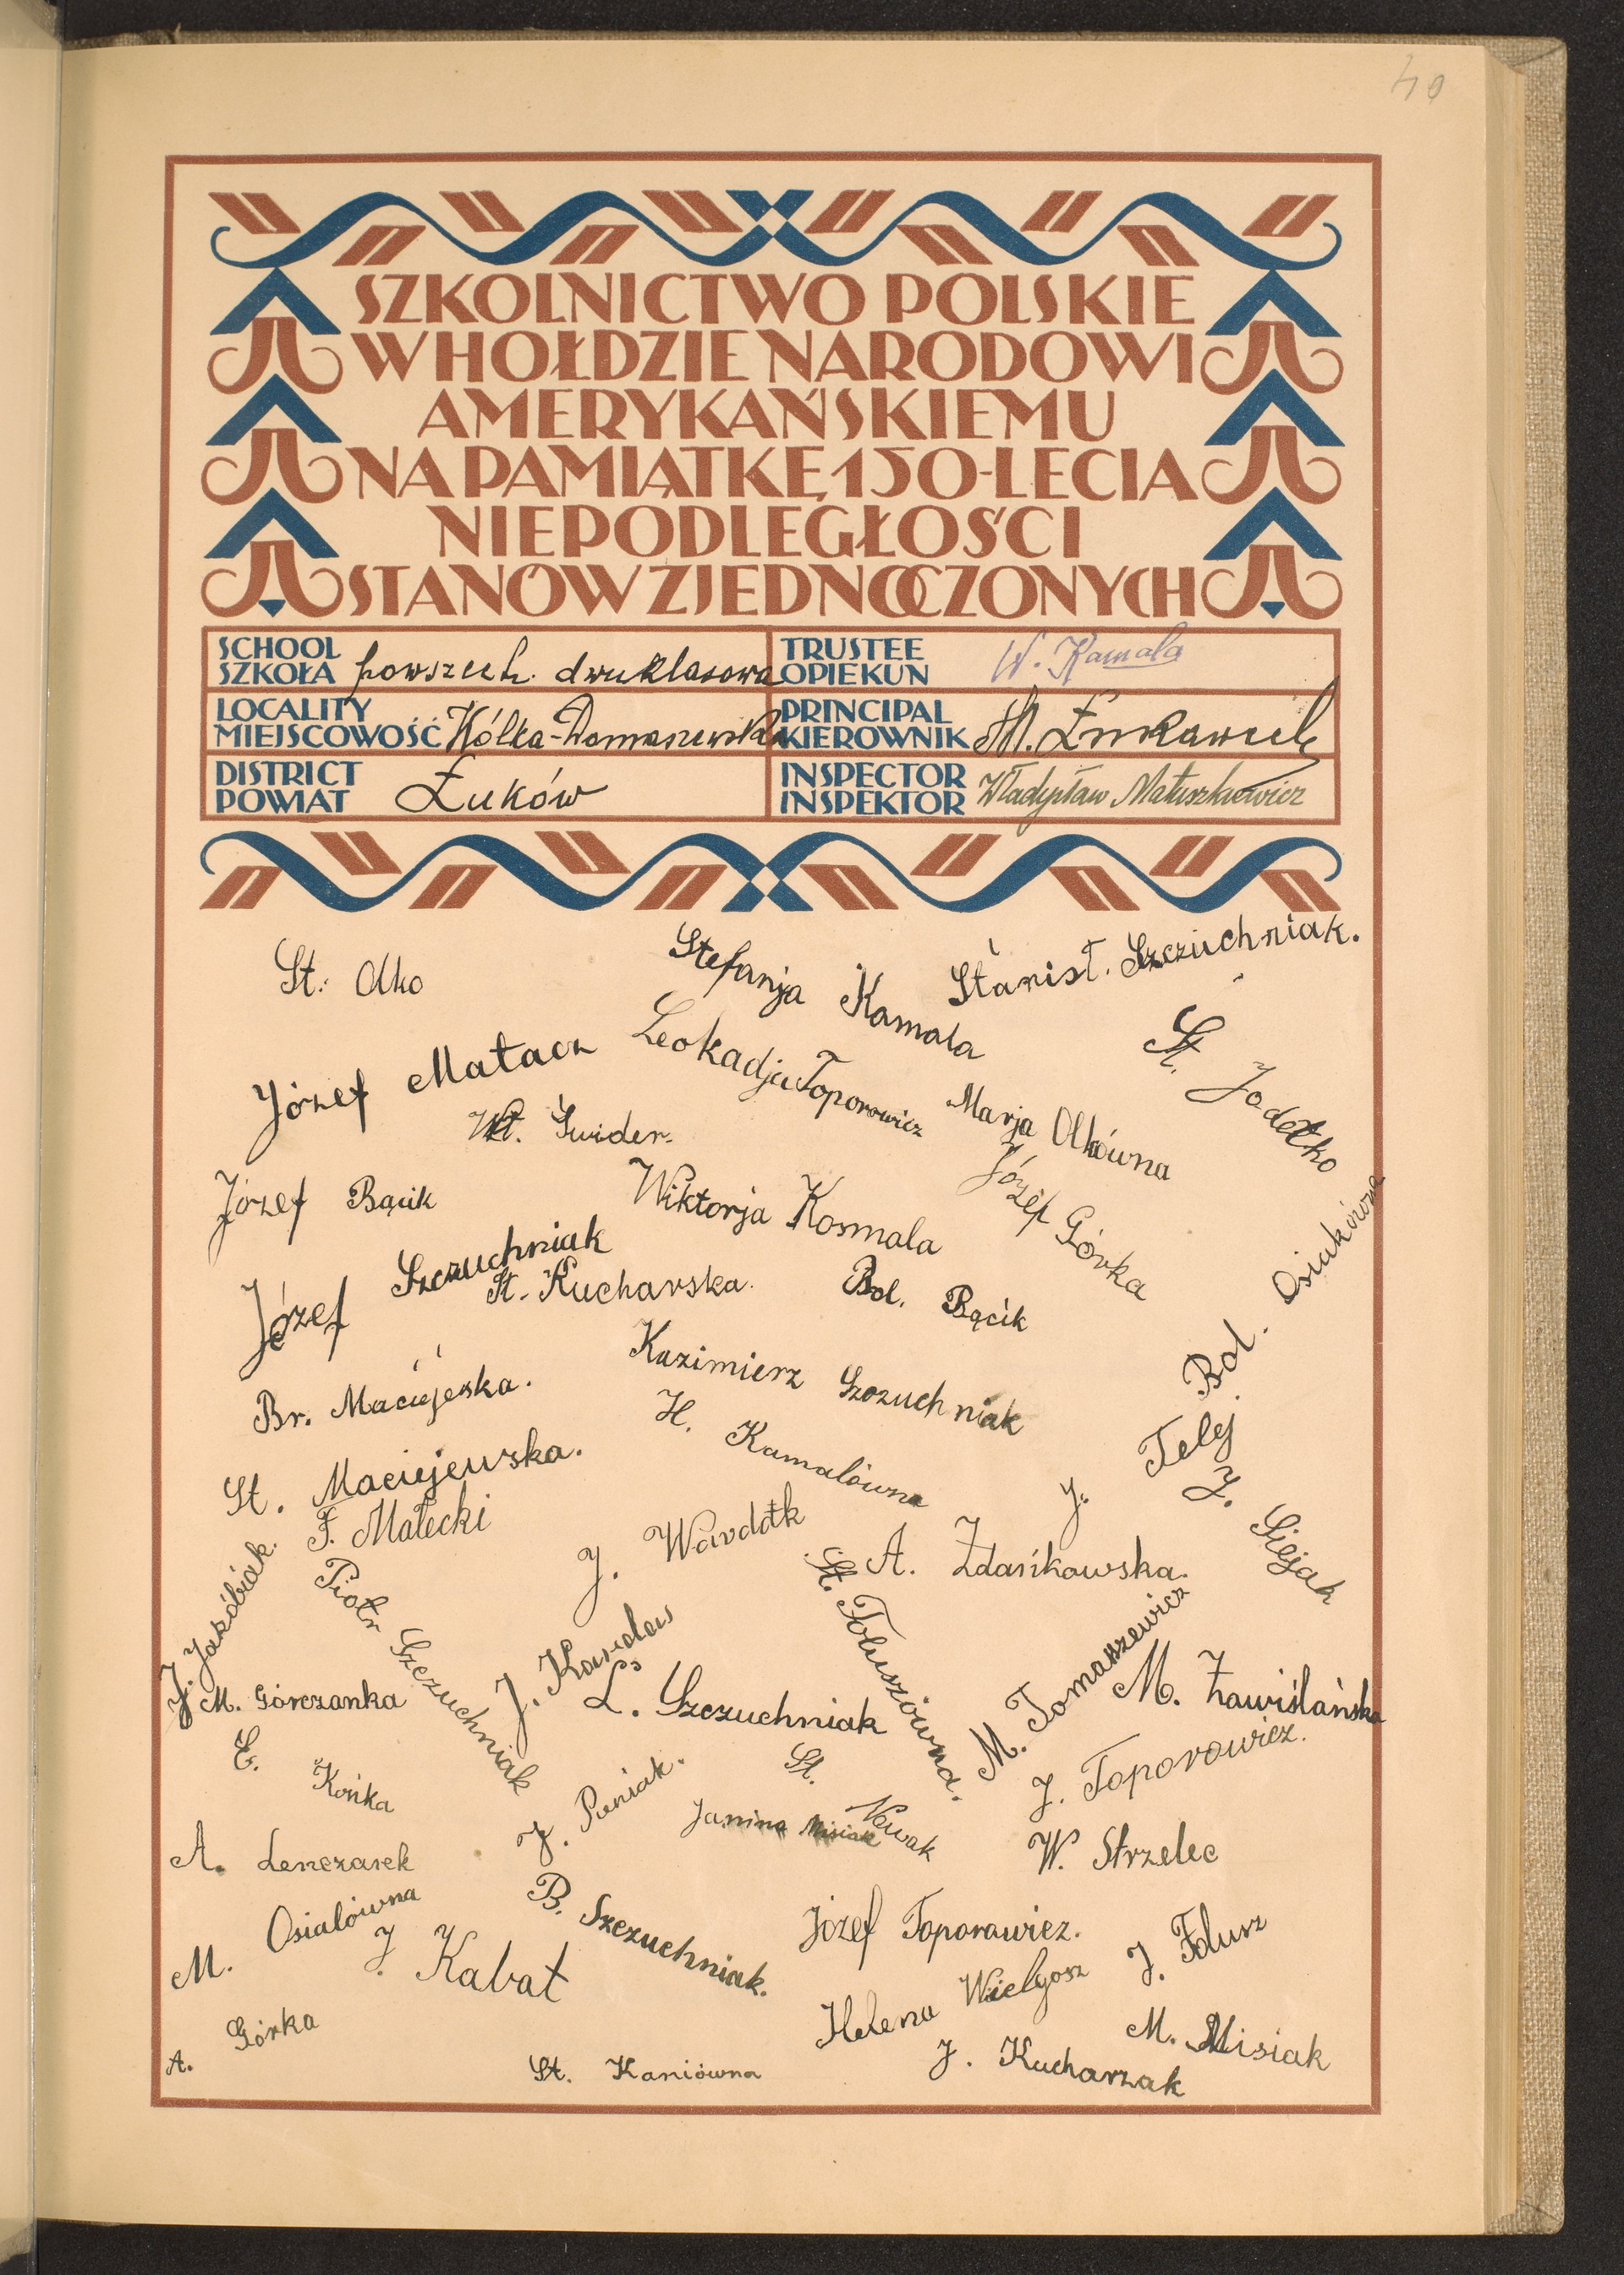 40
SZKOLNICTWO POLSKIE
W HOŁDZIE NARODOWI
AMERYKAŃSKIEMU
NA PAMIĄTKĘ 150-LECIA
NIEPODLEGŁOŚCI
STANÓW ZJEDNOCZONYCH
SCHOOL
SZKOŁA powszech. dwuklasowa
TRUSTEE
OPIEKUN W. Kamala
LOCALITY
MIEJSCOWOŚĆ Wólka-Domaszewska
PRINCIPAL
KIEROWNIK
DISTRICT
POWIAT Łuków
INSPECTOR
INSPEKTOR Władysław Matuszkiewicz
St. Olko
Stefanja Kamala
Stanisł. Szczuchniak.
Józef Matacz
Leokadja Toporowicz
St. Jodełko
Wł. Świder
Marja Olkówna
Józef Bącik
Wiktorja Kosmala
Józef Górka
Józef Szczuchniak
St. Kucharska.
Bol. Bącik
Bol. Osiakówna
Br. Maciejeska.
Kazimierz Szczuchniak
H. Kamalówna
St. Maciejewska.
F. Małecki
J. Telej
J. Giejak
J. Wardak
A. Zdańkowska.
J. Jakóbiak.
Piotr Szczuchniak
St. Foluszówna.
M. Tomaszewicz
M. Górczanka
L. Szczuchniak
M. Zawiślańska
E. Końka
J. Toporowicz.
St. Nowak
Janina Misiak
A. Lenczarek
W. Strzelec
B. Szczuchniak.
M. Osialówna
J. Kabat
Józef Toporowicz.
J. Folusz
Helena Wielgosz
A. Górka
M. Misiak
St. Kaniówna
J. Kucharzak